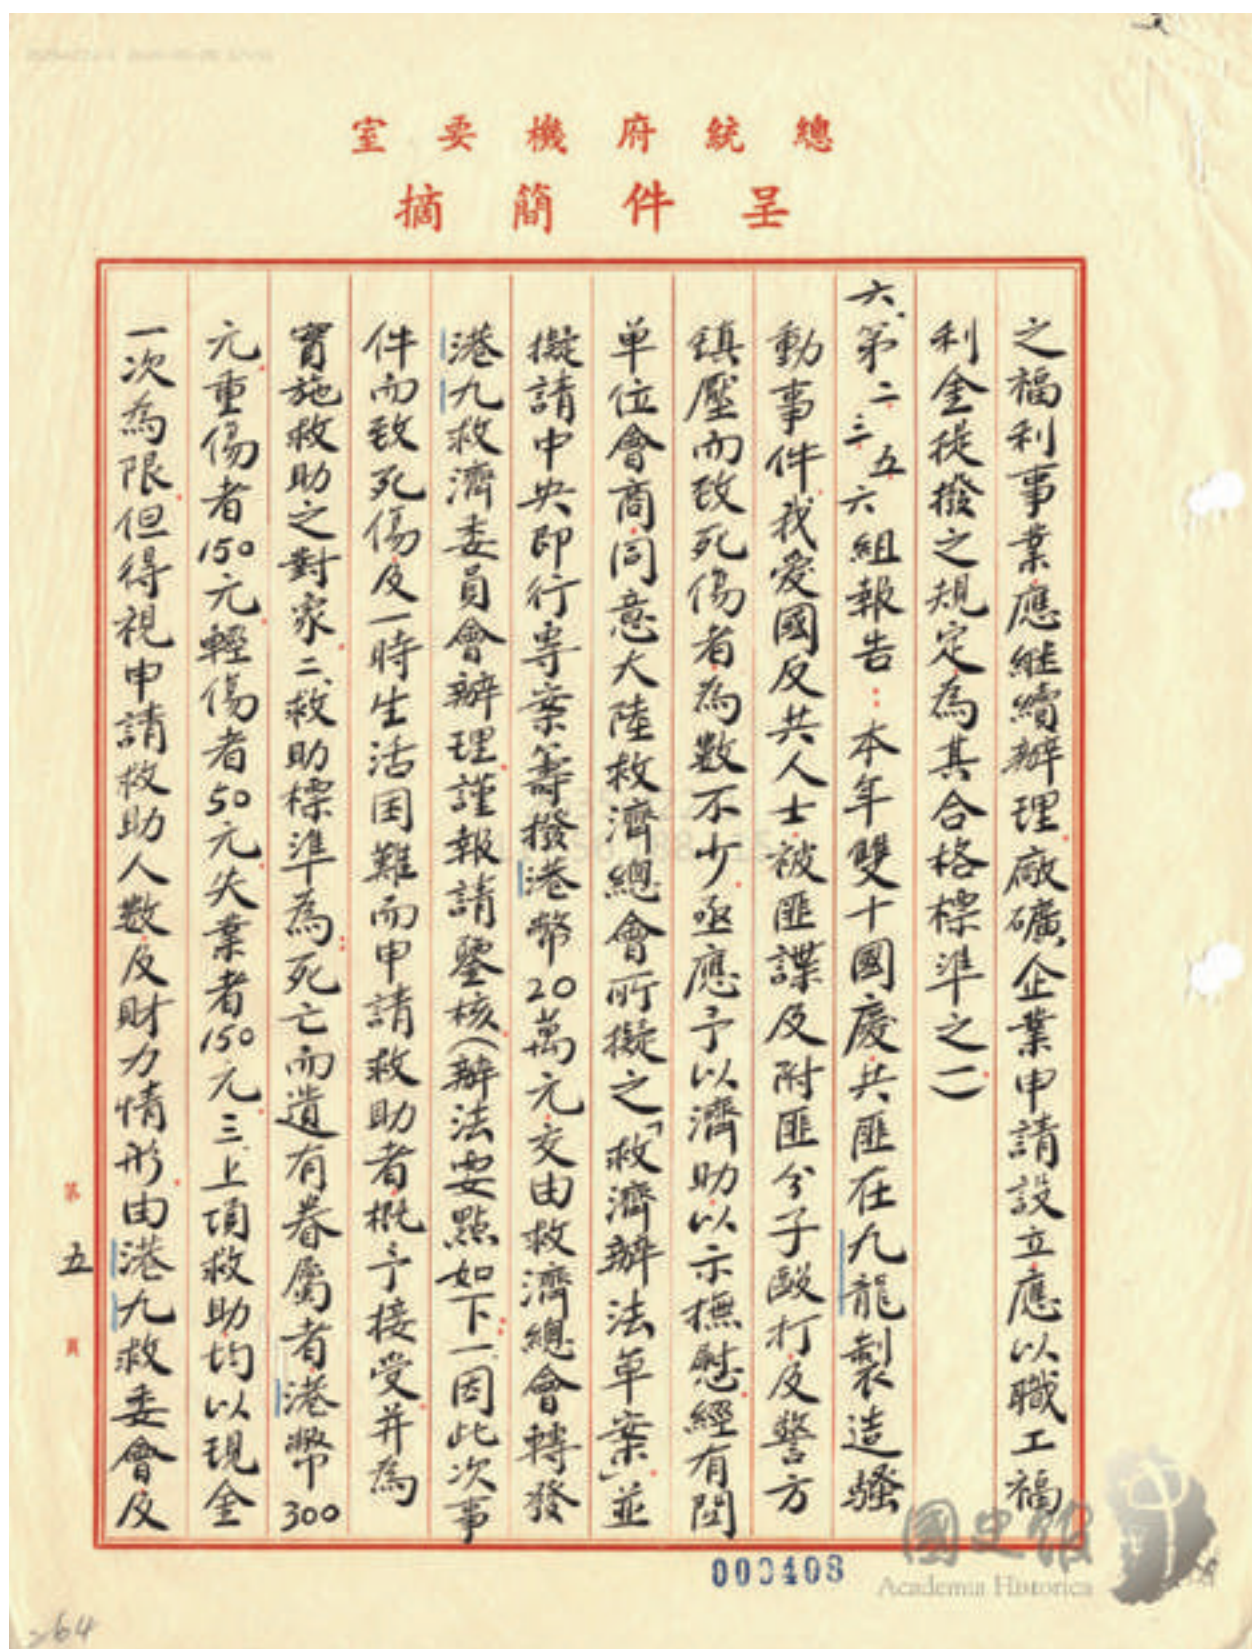 總統府機要室
呈件簡摘
之福利事業應繼續辦理。廠礦、企業申請設立應以職工福
利金提撥之規定為其合格標準之一。
六、第二三五六組報告：本年雙十國慶共匪在九龍製造騷
動事件。我愛國反共人士被匪諜及附匪分子毆打及警方
鎮壓而致死傷者為數不少。亟應予以濟助以示撫慰。經有關
單位會商同意大陸救濟總會所擬之「救濟辦法草案」。並
擬請中央即行專案籌撥港幣20萬元交由救濟總會轉發
港九救濟委員會辦理。謹報請鑒核。(辦法要點如下：一、因此次事
件而致死傷及一時生活困難而申請救助者概予接受并為
實施救助之對象。二、救助標準為：死亡而遺有眷屬者港幣300
元。重傷者150元。輕傷者50元。失業者150元。三、上項救助均以現金
一次為限。但得視申請救助人數及財力情形。由港九救委會及
第五頁
000408
國史館
Academia Historica
64